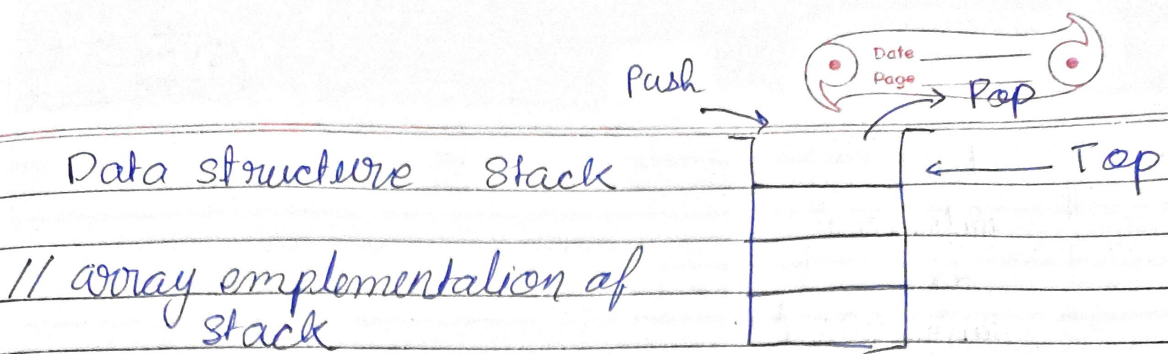 Date
Page
Push
Pop
Data structure Stack
Top
// array emplementation of
stack